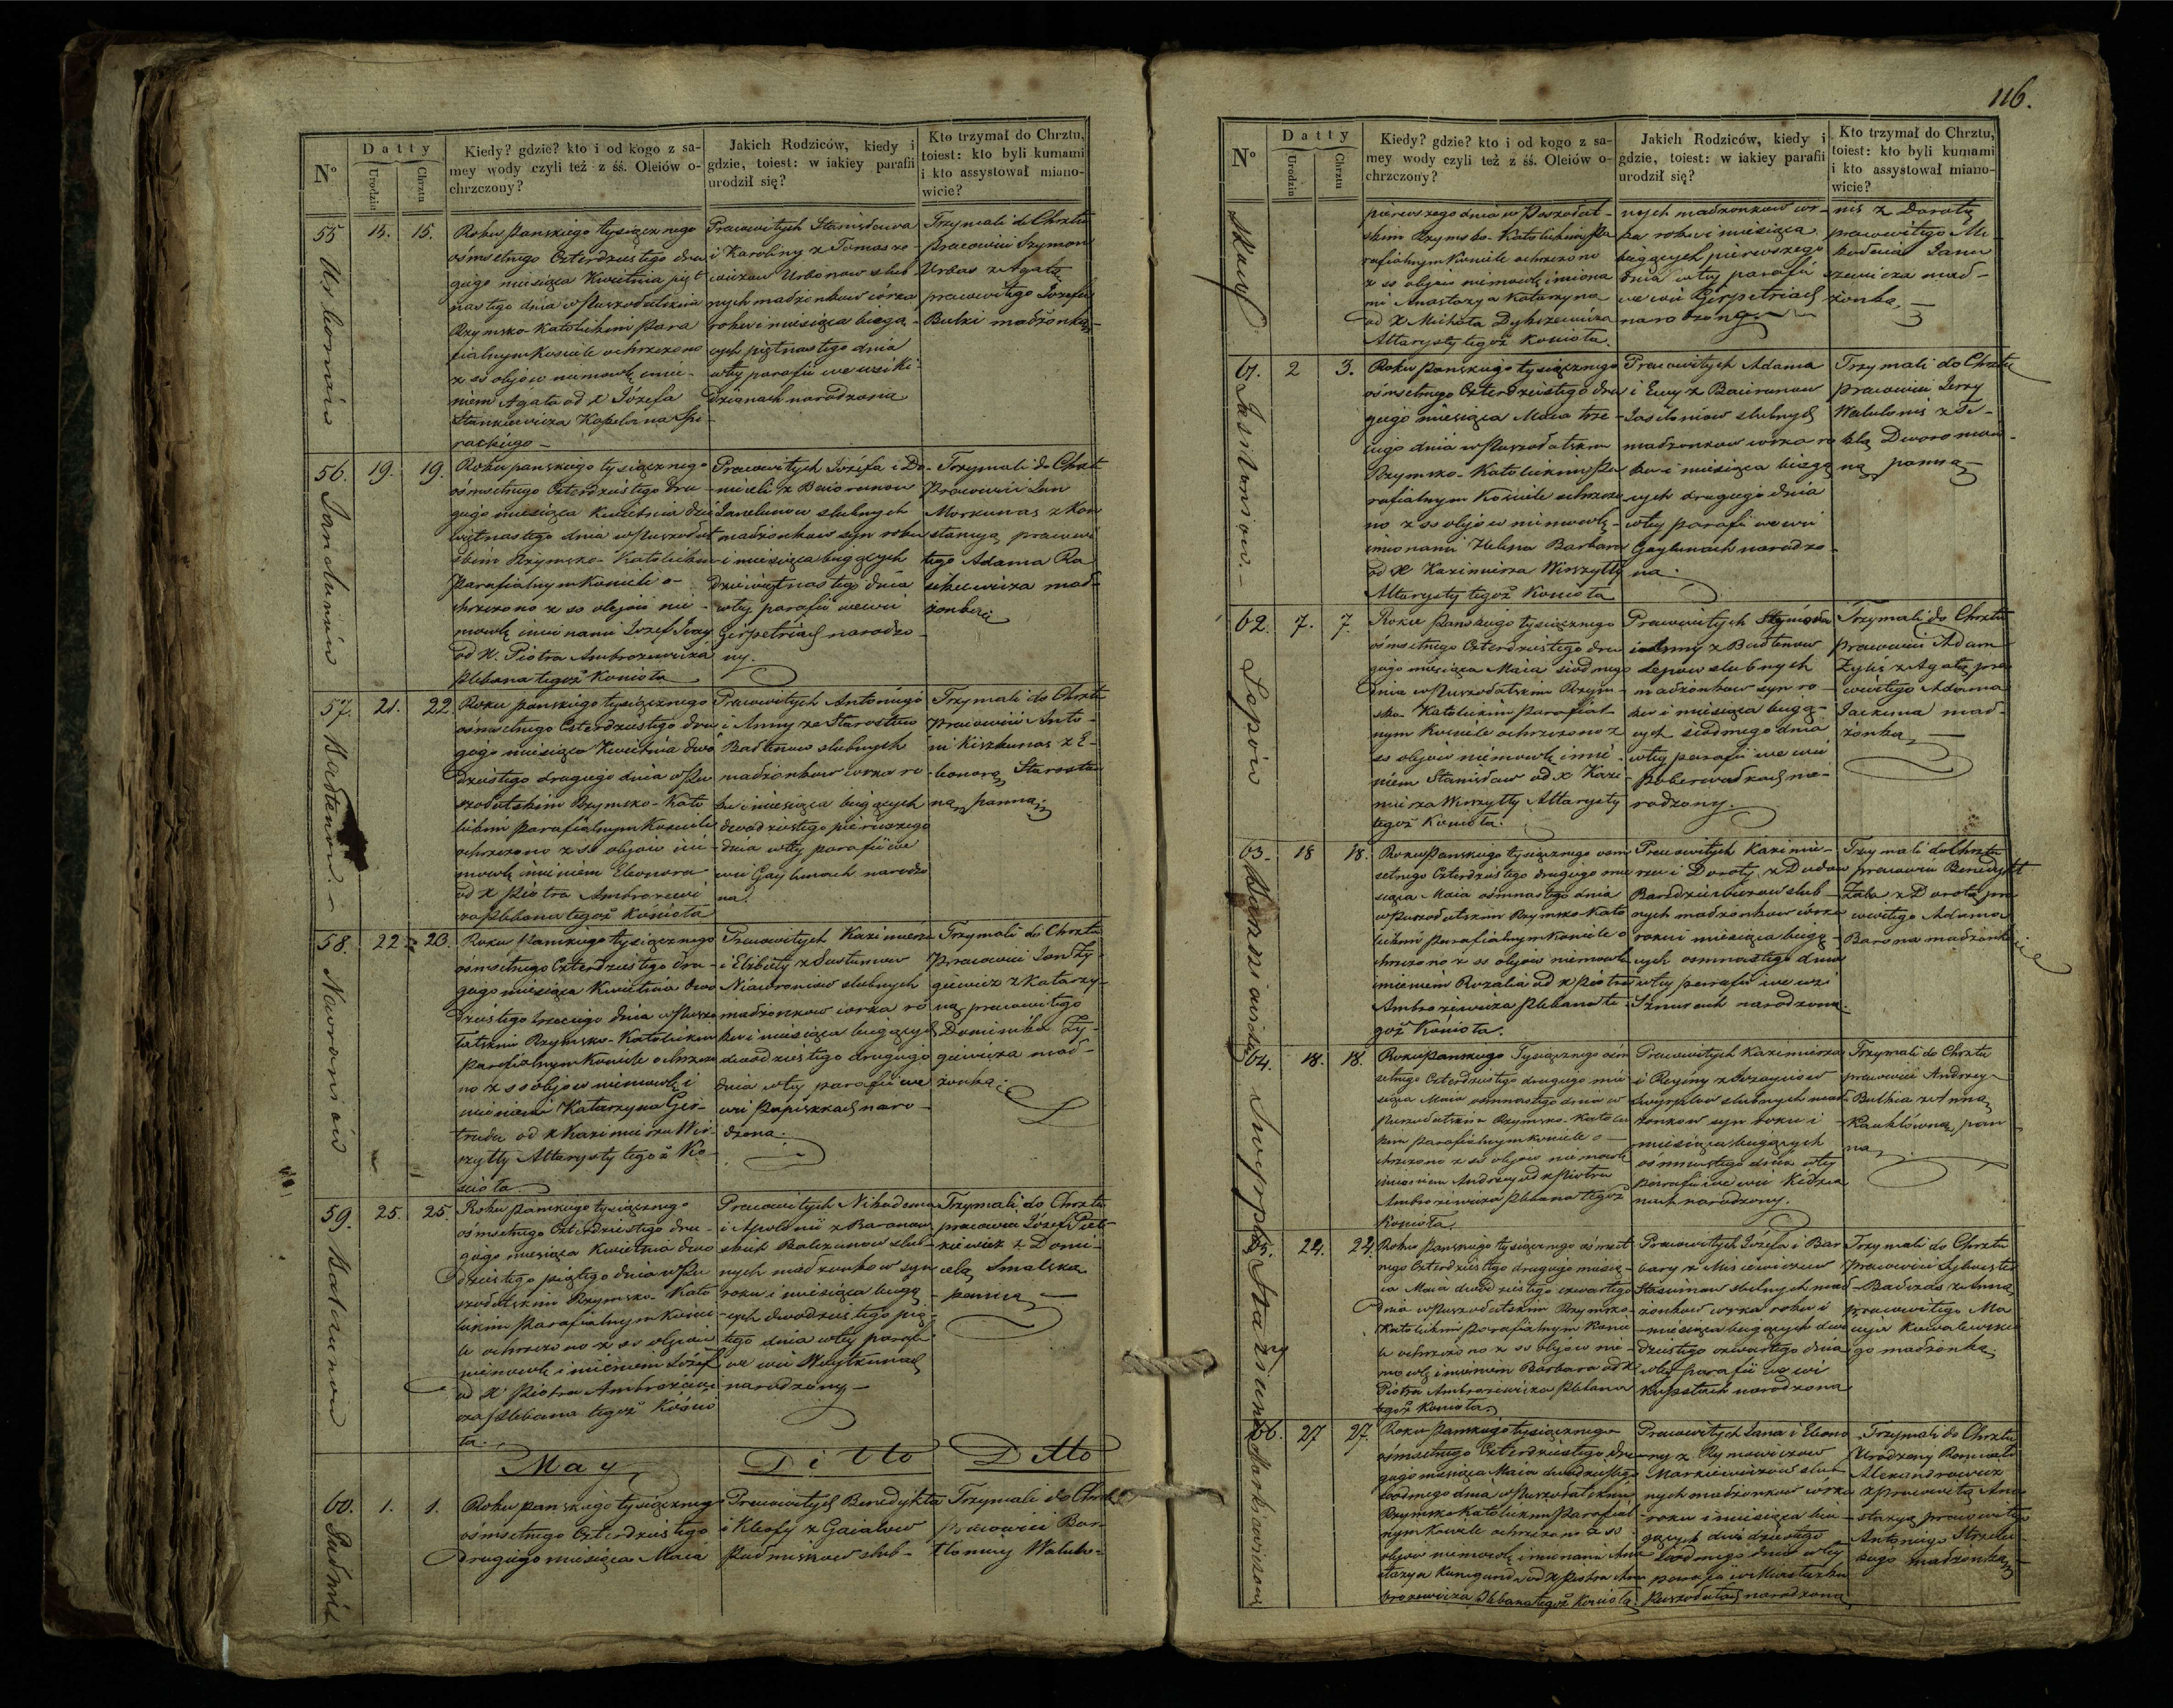 116.
N°
Datty
Urodzin
Chrztu
Kiedy? gdzie? kto i od kogo z sa-
mey wody czyli też z śś. Oleiów o-
chrzczony?
Jakich Rodziców, kiedy i
gdzie, toiest: w iakiey parafii
urodził się?
Kto trzymał do Chrztu,
toiest: kto byli kumami
i kto assystował miano-
wicie?
55
15. 15.
Roku Panskiego tysiącznego
ośmsetnego Czterdziestego dru
giego miesiąca Kwietnia pięt
nastego dnia w Puszołatskim
Rzymsko-Katolickim Para
fialnym Kosciele ochrzczono
z śś olejow niemowlę imie-
niem Agata od X Józefa
Stankiewicza Kapelana
Pracowitych Stanisława
i Karoliny z Tomasze-
wiczow Urbonow ślub
nych małżonkow córka
roku i miesiąca biezą-
cych piętnastego dnia
w tey parafii we wsi Ki-
dzianach narodzona
Trzymali do Chrztu
Pracowici Szymon
Urbas z Agatą
pracowitego Jozefa
małżonką
56. Janelunow
19. 19.
Roku panskiego tysiącznego
ośmsetnego Czterdziestego dru
giego miesiąca Kwietnia dzie
więtnastego dnia w Puszołat
skim Rzymsko-Katolickim
Parafialnym Kosciele o-
chrzczono z śś olejow nie-
mowlę imionami Jozef Jerzy
od X. Piotra Ambrozewicza
plebana tegoż Koscioła
Pracowitych Jozefa i Do-
micelli z Baioranow
Janelunow slubnych
małżonkow syn roku
i miesiąca bieżących
dziewiętnastego dnia
w tey parafii we wsi
Girpetriach narodzo-
ny.
Trzymali do Chrzt
Pracowici Jan
Morkunas z Kon
stancyą pracowi
tego Adama Ra
mał-
żonkai
57.
21. 22.
Roku panskiego tysiącznego
ośmsetnego Czterdziestego dru
giego miesiąca Kwietnia dwa
dziestego drugiego dnia w Pu
szołatskim Rzymsko-Kato
lickim Parafialnym Kosciele
ochrzczono z śś olejow nie
mowlę imieniem Eleonora
od X Piotra Ambrozewi
cza Plebana tegoż Kościoła
Pracowitych Antoniego
i Anny ze Starostow
slubnych
małżonkow corka ro
ku i miesiąca bieżących
dwadziestego pierwszego
dnia w tey parafii we
wsi Gaylunach narodzo
na.
Trzymali do Chrztu
Pracowici Anto-
ni Kiszkunas z E-
leonorą Starosta
ną panną
58. Nawroniow
22 23.
Roku Panskiego tysiącznego
ośmsetnego Czterdziestego dru-
giego miesiąca Kwietnia dwa
dziestego trzeciego dnia w Puszo
łatskim Rzymsko-Katolickim
Parafialnym Kosciele ochrzczo
no z śś olejow niemowlę i
mionami Katarzyna Ger-
truda od X Kazimierza Wir-
szytty Altarysty tegoż Ko-
scioła
Pracowitych Kazimierza
i Elżbiety z
Niawroniow slubnych
małżonkow corka ro
ku i miesiąca bieżących
dwadziestego drugiego
dnia w tey parafii we
wsi Papiszkach naro-
dzona.
Trzymali do Chrztu
Pracowici Jan Zy-
giewicz z Katarzy-
ną pracowitego
Dominika Zy-
giewicza mał-
żonką.
59. Balczunow
25. 25.
Roku Panskiego tysiącznego
ośmsetnego Czterdziestego dru-
giego miesiąca Kwietnia dwa
dziestego piątego dnia w Pu
szołatskim Rzymsko-Kato
lickim Parafialnym Koscie
le ochrzczono z śś olejow
niemowlę imieniem Józef
od X Piotra Ambrozewi
cza Plebana tegoż Koscio
ła.
Pracowitych Nikodema
i Apolonii z Baranow
skich Balczunow slub-
nych małzonkow syn
roku i miesiąca bieżą-
cych dwadziestego pią-
tego dnia w tey parafii
we wsi Woytkunach
narodzony
Trzymali do Chrztu
pracowici Józef Piet-
kiewicz z Domi-
celą Smalską
panną
May Ditto Ditto
60.
1. 1.
Roku panskiego tysiącznego
ośmsetnego Czterdziestego
drugiego miesiąca Maia
Pracowitych Benedykta
i Kleofy z Gaialow
slub-
Trzymali do Chrztu
pracowici Bar-
tłomiey Walulo-
N°
Datty
Urodzin
Chrztu
Kiedy? gdzie? kto i od kogo z sa-
mey wody czyli też z śś. Oleiów o-
chrzczony?
Jakich Rodziców, kiedy i
gdzie, toiest: w iakiey parafii
urodził się?
Kto trzymał do Chrztu,
toiest: kto byli kumami
i kto assystował miano-
wicie?
pierwszego dnia w Puszołat-
skim Rzymsko-Katolickim Pa
rafialnym Kosciele ochrzczono
z śś olejow niemowlę imiona
mi Anastazya Katarzyna
od X Michała
Altarysty tegoż Kościoła.
nych małzonkow cor-
ka roku i miesiąca
bieżących pierwszego
dnia w tey parafii
we wsi Girpetriach
narodzona
nis z Dorotą
pracowitego
Jana
mał-
żonką
61. Jasilonow
2 3.
Roku Panskiego tysiącznego
ośmsetnego Czterdziestego dru
giego miesiąca Maia trze-
ciego dnia w Puszołatskim
Rzymsko-Katolickim Pa
rafialnym Kosciele ochrzczo
no z śś olejow niemowlę
imionami Helena Barbara
od X Kazimierza Wirszytty
Altarysty tegoż Kosciola
Pracowitych Adama
i Ewy z Baioranow
Jasilonow slubnych
małżonkow corka ro
ku i miesiąca bieżą
cych drugiego dnia
w tey parafii we wsi
Gaylunach narodzo-
na.
Trzymali do Chrztu
pracowici Jerzy
Walulonis z Te-
klą
ną panną
62. Lepow
7. 7.
Roku Panskiego tysiącznego
ośmsetnego Czterdziestego dru
giego miesiąca Maia siodmego
dnia w Puszołatskim Rzym-
sko-Katolickim Parafial-
nym Kosciele ochrzczono z
śś olejow niemowlę imie-
niem Stanisław od X Kazi-
mierza Wirszytty Altarysty
tegoż Kosciola.
Pracowitych
i Anny z
Lepow slubnych
małżonkow syn ro-
ku i miesiąca bieżą-
cych siodmego dnia
w tey parafii we wsi
na-
rodzony.
Trzymali do Chrztu
pracowici Adam
z Agatą pra
cowitego Adama
mał-
żonką
63.
18 18.
Roku Panskiego tysiącznego osm
setnego Czterdziestego drugiego mie
siąca Maia ośmnastego dnia
w Puszołatskim Rzymsko-Kato
lickim Parafialnym Kosciele o
chrzczono z śś olejow niemowle
imieniem Rozalia od X Piotra
Ambrozewicza Plebana te-
goż Kościoła.
Pracowitych Kazimie-
rza i Doroty z
slub-
nych małżonkow córka
roku i miesiąca bieżą-
cych osmnastego dnia
w tey parafii we wsi
Sznurach narodzona.
Trzymali do Chrztu
pracowici Benedykt
z Dorotą pra
cowitego Adama
Barona małżonką
64.
18. 18.
Roku Panskiego Tysiącznego ośm
setnego Czterdziestego drugiego mie
siąca Maia osmnastego dnia w
Puszołatskim Rzymsko-Katolic
kim Parafialnym Kosciele o-
chrzczono z śś olejow niemowle
imieniem Andrzey od X Piotra
Ambrozewicza Plebana tegoż
Kościoła.
Pracowitych Kazimierza
i Reginy z
slubnych mał-
żonkow syn roku i
miesiąca bieżących
ośmnastego dnia w tey
parafii we wsi Kidzia
nach narodzony.
Trzymali do Chrztu
pracowici Andrzey
z Anną
pan
ną
65.
24. 24.
Roku Panskiego tysiącznego ośmset
nego Czterdziestego drugiego miesią-
ca Maia dwadziestego czwartego
dnia w Puszołatskim Rzymsko-
Katolickim Parafialnym Koscie
le ochrzczono z śś olejow nie-
mowlę imieniem Barbara od X
Piotra Ambrozewicza Plebana
tegoż Kosciola.
Pracowitych Józefa i Bar
bary z
slubnych mał-
żonkow corka roku i
miesiąca bieżących dwa
dziestego czwartego dnia
w tey parafii we wsi
narodzona
Trzymali do Chrztu
Pracowici Sylwester
z Anną
pracowitego Ma
cieja Kowalewskie
go małżonką
66. Markiewiczow
27 27.
Roku Panskiego tysiącznego
ośmsetnego Czterdziestego dru
giego miesiąca Maia dwadziestego
siodmego dnia w Puszołatskim
Rzymsko Katolickim Parafial-
nym Kosciele ochrzczono z śś
olejow niemowlę imionami Ana
stazya Kunegunda od X Piotra Am
brozewicza Plebana tegoż Kosciola
Pracowitych Jana i Eleono
ry z Rymowiczow
Markiewiczow slub
nych małżonkow corka
roku i miesiąca bie-
żących dwadziestego
siodmego dnia w tey
parafii w Miasteczku
Puszołatach narodzona
Trzymali do Chrztu
Urodzony Romuald
Alexandrowicz
z pracowitą Ana
stazyą pracowitego
Antoniego
małżonką